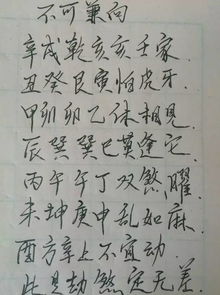 不可兼向
辛戌乾亥亥壬家
丑癸艮寅怕虎牙
甲卯卯乙休相見
辰巽巽巳莫逢它
丙午午丁双煞曜
未坤庚申乱如麻
酉方辛上不宜动
此是劫煞定无差.